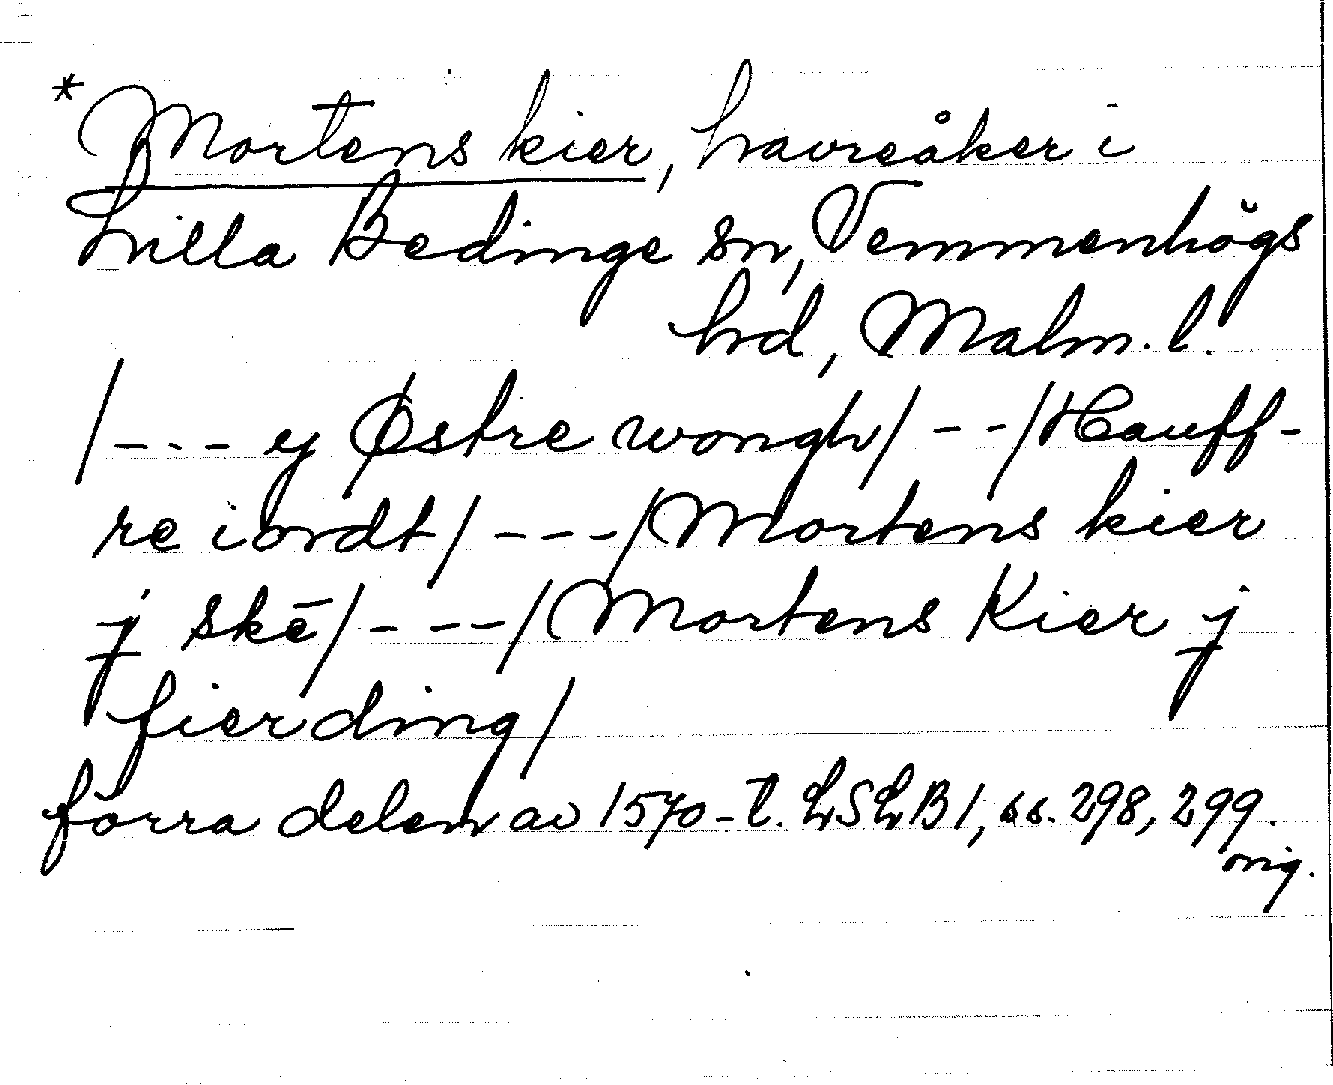 * Mortens kier, havreåker i
Lilla Bedinge sn, Vemmenhögs
hd, Malm. l.
/--- y Østre wongh/ --/Hauff-
re iordt/ ---/Mortens kier
j skē/ ---/Mortens Kier j
fierding/
förra delen av 1570-t. LSLB 1, ss. 298, 299.
orig.